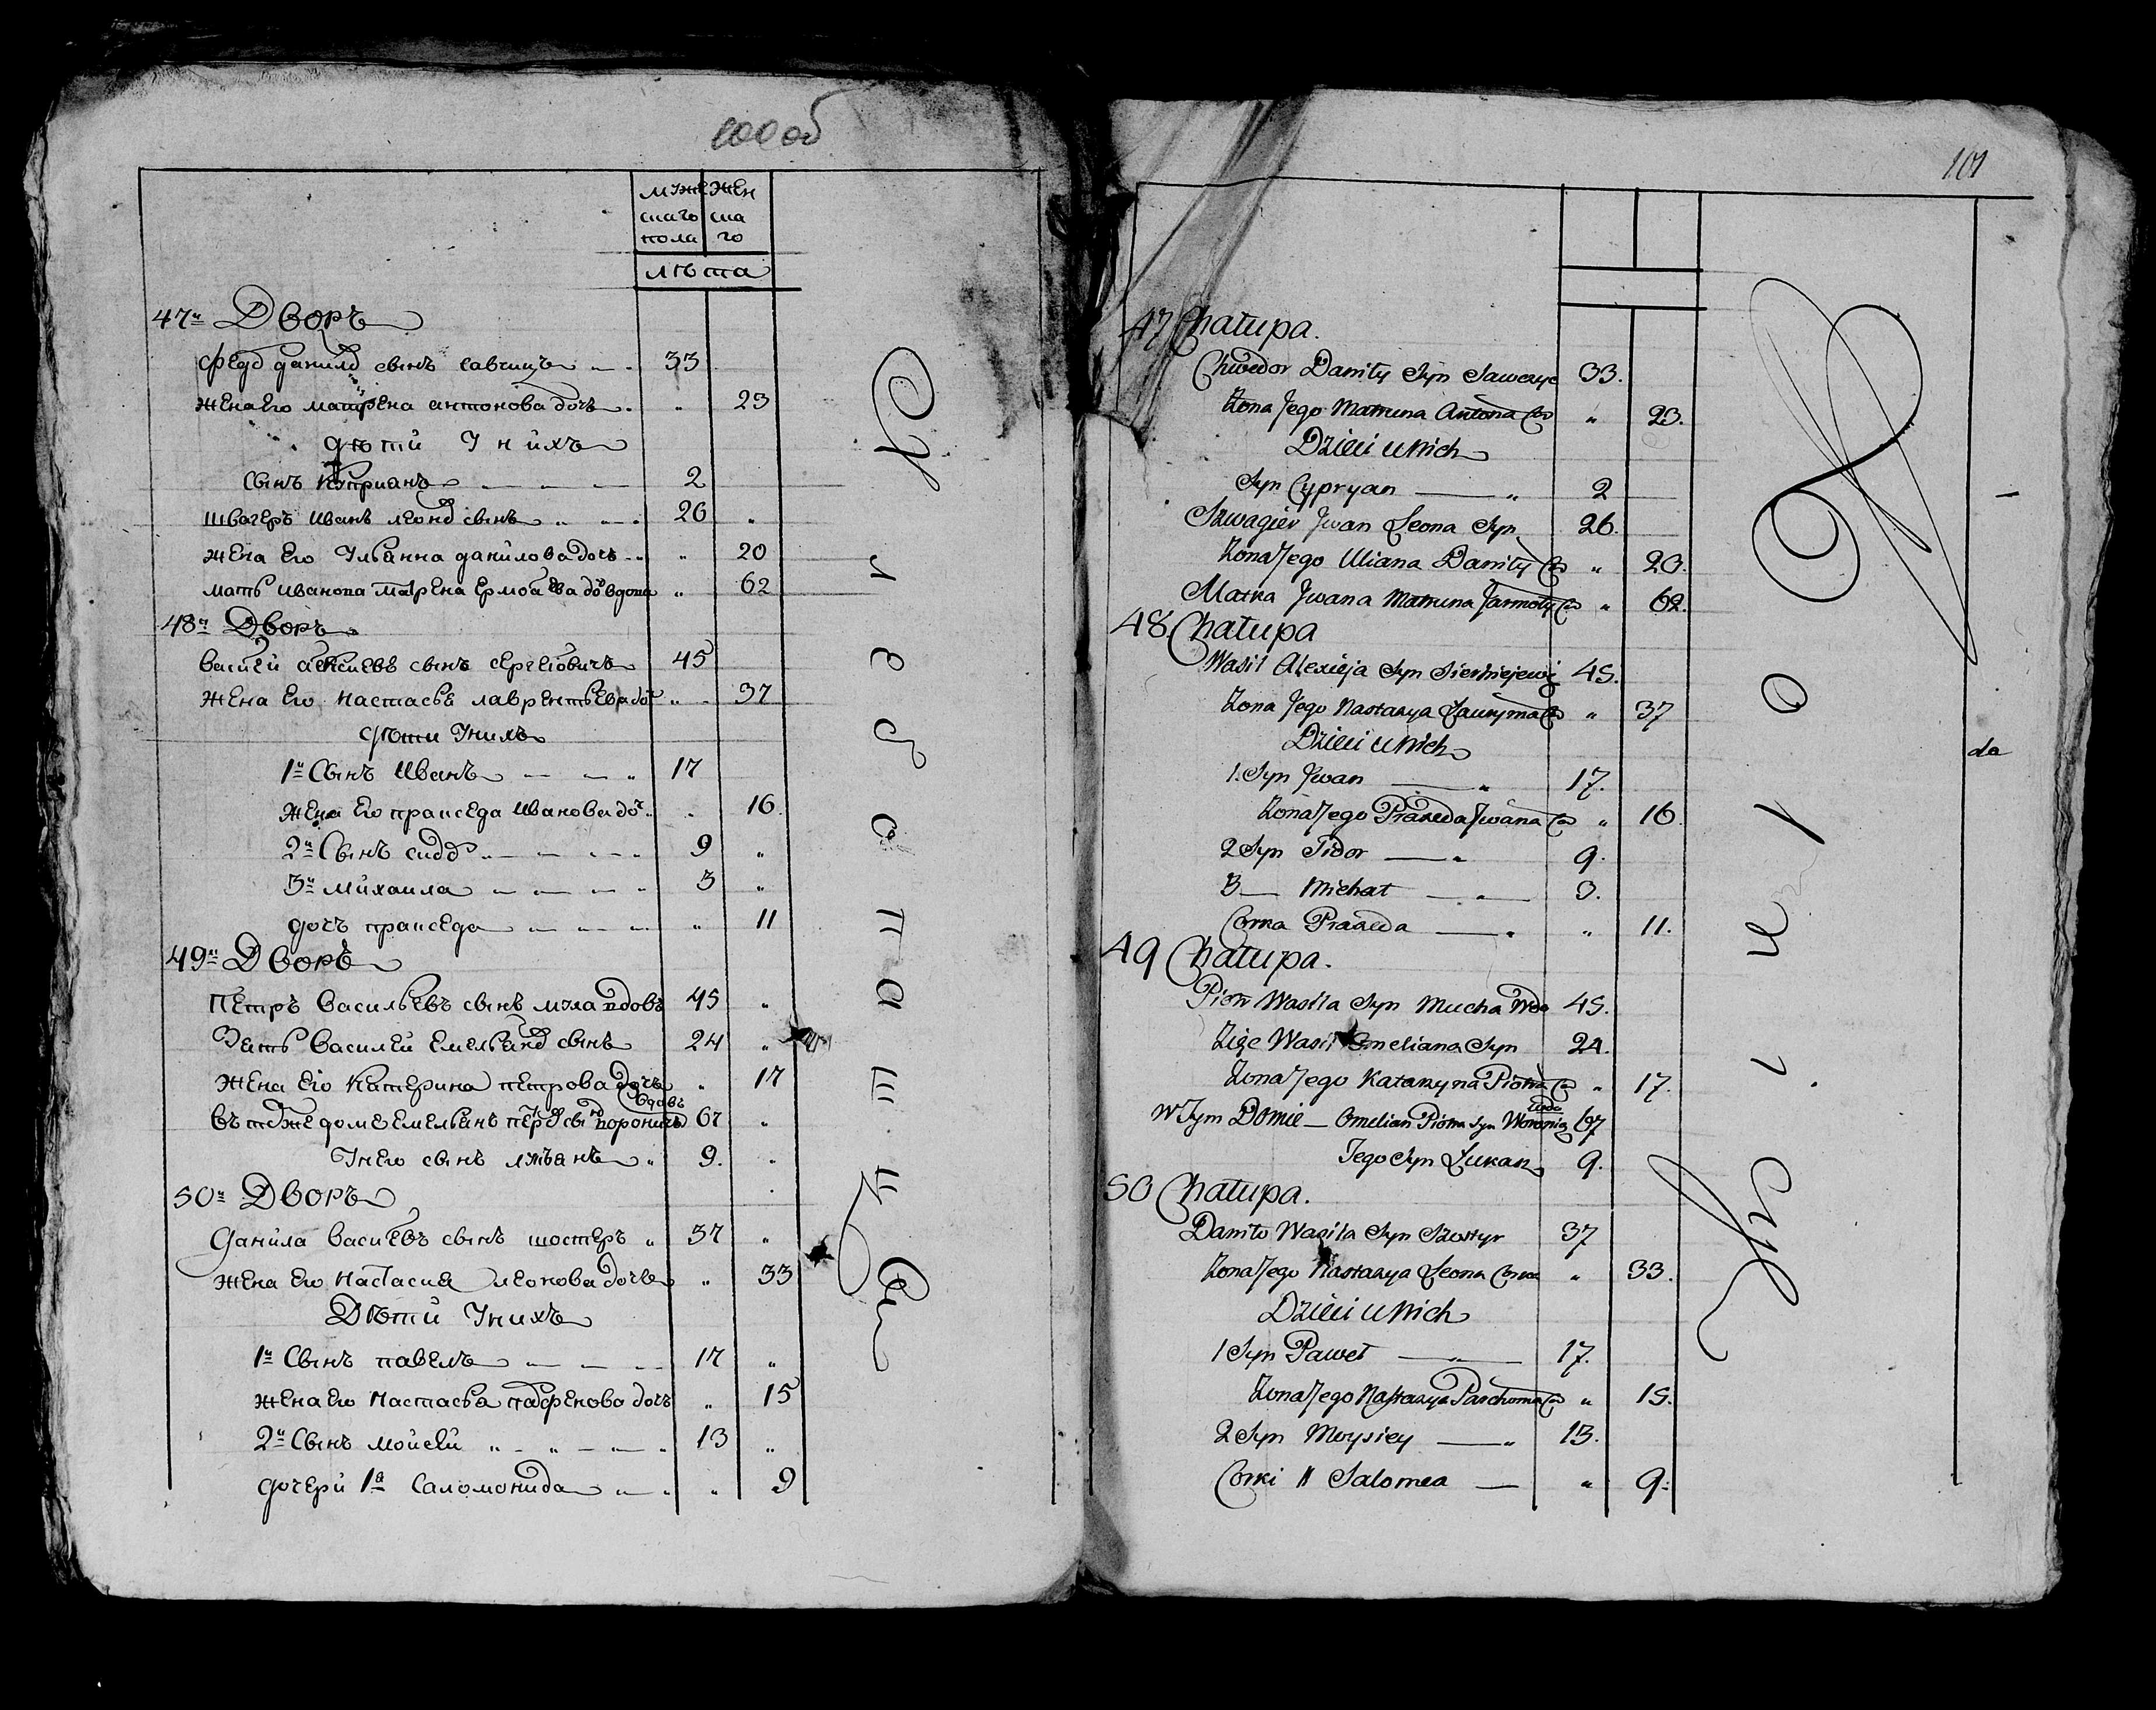 100 об
мужескаго пола женскаго
лѣта
47й Дворъ
Федоръ данилов сынъ савчицъ 33
жена Его матрена антонова дочь " 23
дѣти У нихъ
сынъ Киприанъ 2
швагеръ Иванъ леонов сынъ 26 "
жена Его Ульянна данилова дочь " 20
мать иванова матрена ермолаева дочь вдова " 62
48й Дворъ
Василей алексеевъ сынъ сергеювичъ 45
жена Его настасья лаврентьева доч " 37
дѣти Унихъ
1й Сынъ Иванъ 17
жена Его пракседа Иванова доч " 16
2й Сынъ сидор 9 "
3й михаила 3 "
дочь пракседа " 11
49й Дворъ
Петръ Васильевъ сынъ муха вдовъ 45 "
Зять Василей Емельянов сынъ 24 "
жена Его Катерина петрова дочь " 17
вдовъ
въ томже доме Емельянъ петров сынъ вороничъ 67 "
Унего сынъ лукьянъ 9 "
50й Дворъ
данила Васильевъ сынъ шостеръ 37 "
жена Его настасия леонова дочь " 33
Дѣти Унихъ
1й Сынъ павелъ 17 "
жена Его настасья парфенова дочь " 15
2й Сынъ мойсей " " 13 "
дочери 1я Саломонида " 9
101
47 Chałupa.
Chwedor Daniły Syn Sawczyc 33.
Żona Jego Matruna Antona Co " 23.
Dzieci u Nich
Syn Cypryan " 2
Szwagier Jwan Leona Syn 26.
Żona Jego Uliana Daniły Co " 20.
Matka Jwana Matruna Jarmoły Co " 62.
48 Chałupa
Wasil Alexieja Syn Sierhiejewicz 45.
Żona Jego Nastazya Ławryna Co " 37
Dzieci u Nich
1. Syn Jwan " 17.
Żona Jego Praxeda Jwana Co " 16
2 Syn Sidor " 9.
3 — Michał " 3.
Corka Praxeda " " 11.
49 Chałupa.
Piotr Wasila Syn Mucha Wdo 45.
Zięc Wasil Omeliana Syn 24.
Żona Jego Katarzyna Piotra Co " 17.
Wdo
W Tym Domie — Omelian Piotra Syn Woronicz 67
Jego Syn Łukasz 9.
50 Chałupa.
Daniło Wasila Syn Szostyr 37
Żona Jego Nastazya Leona Corka " 33.
Dzieci u Nich
1 Syn Paweł " 17.
Żona Jego Nastazya Parchoma Co " 15.
2 Syn Moysiey " 13.
Corki 1 Salomea — " 9.
da